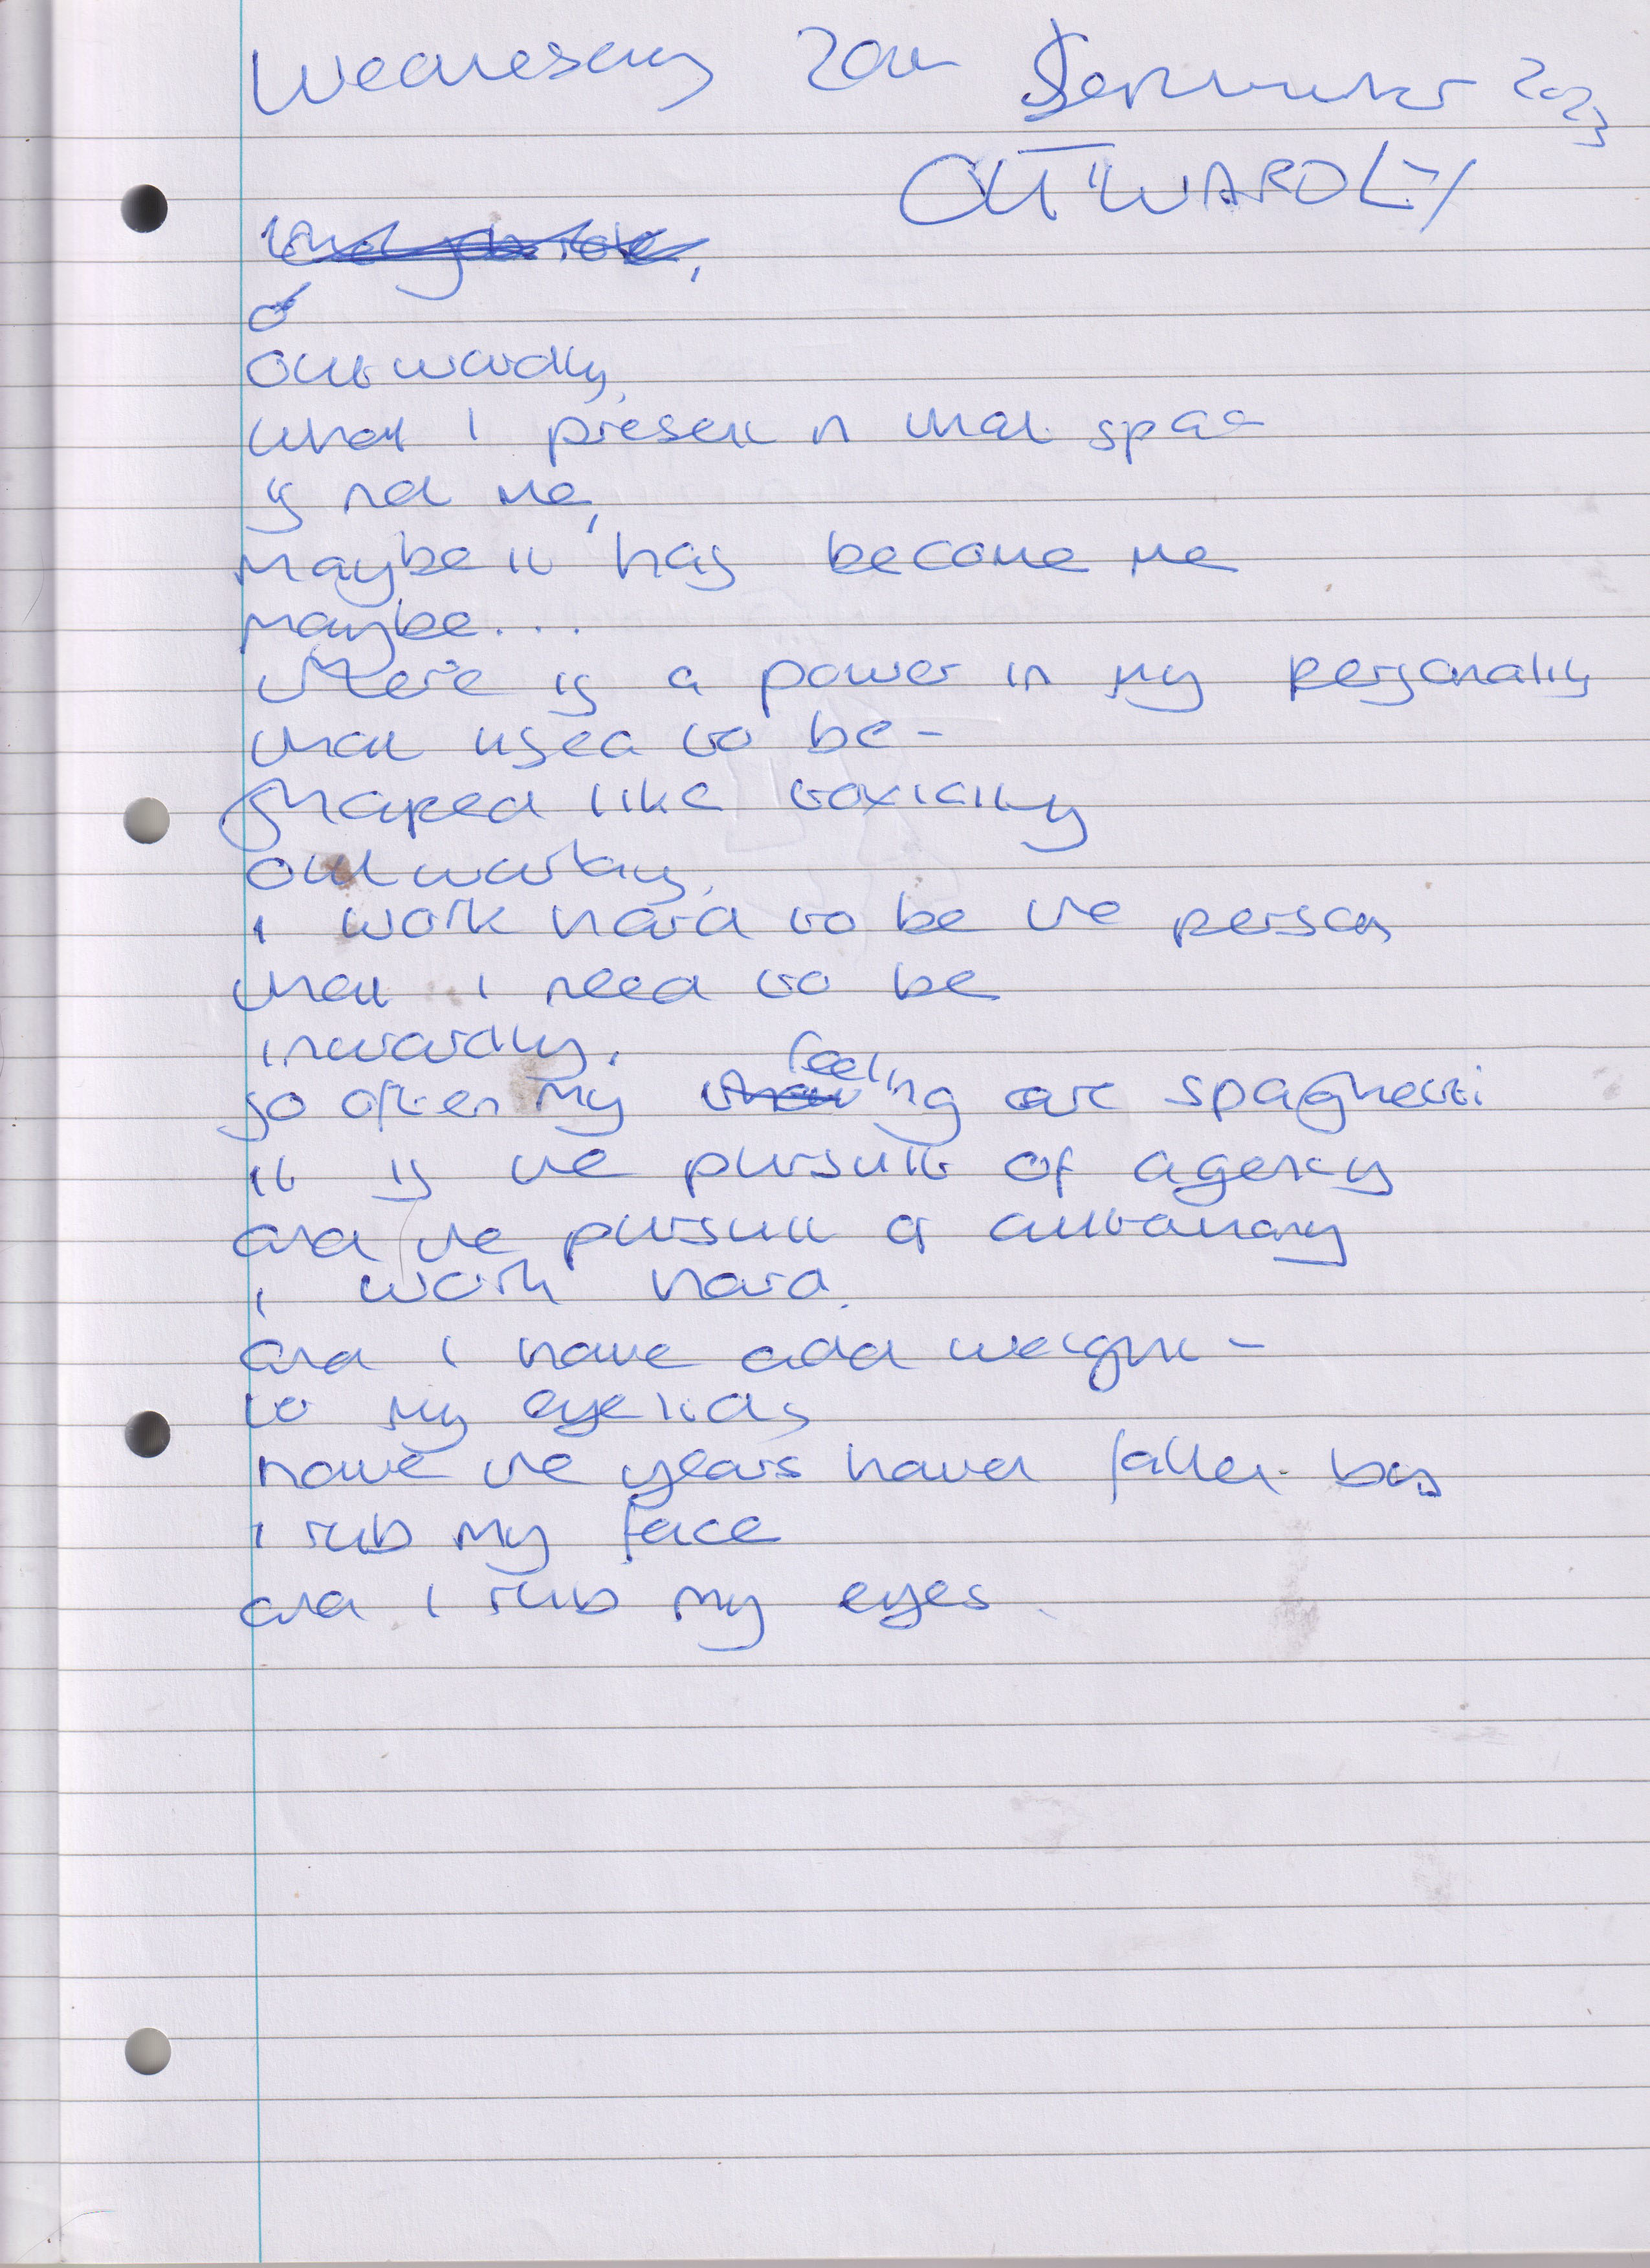 Wednesday 20th September 2023
OUTWARDLY
outwardly,
what I present in that space
is not me,
maybe it has become me
maybe...
there is a power in my personality
that used to be -
shaped like toxicity
outwardly,
i work hard to be the person
that i need to be
inwardly.
so often my feeling are spaghetti
it is the pursuit of agency
and the pursuit of autonomy
i work hard.
and i have add weight -
to my eyelids
have the years haven fallen by
i rub my face
and i rub my eyes.